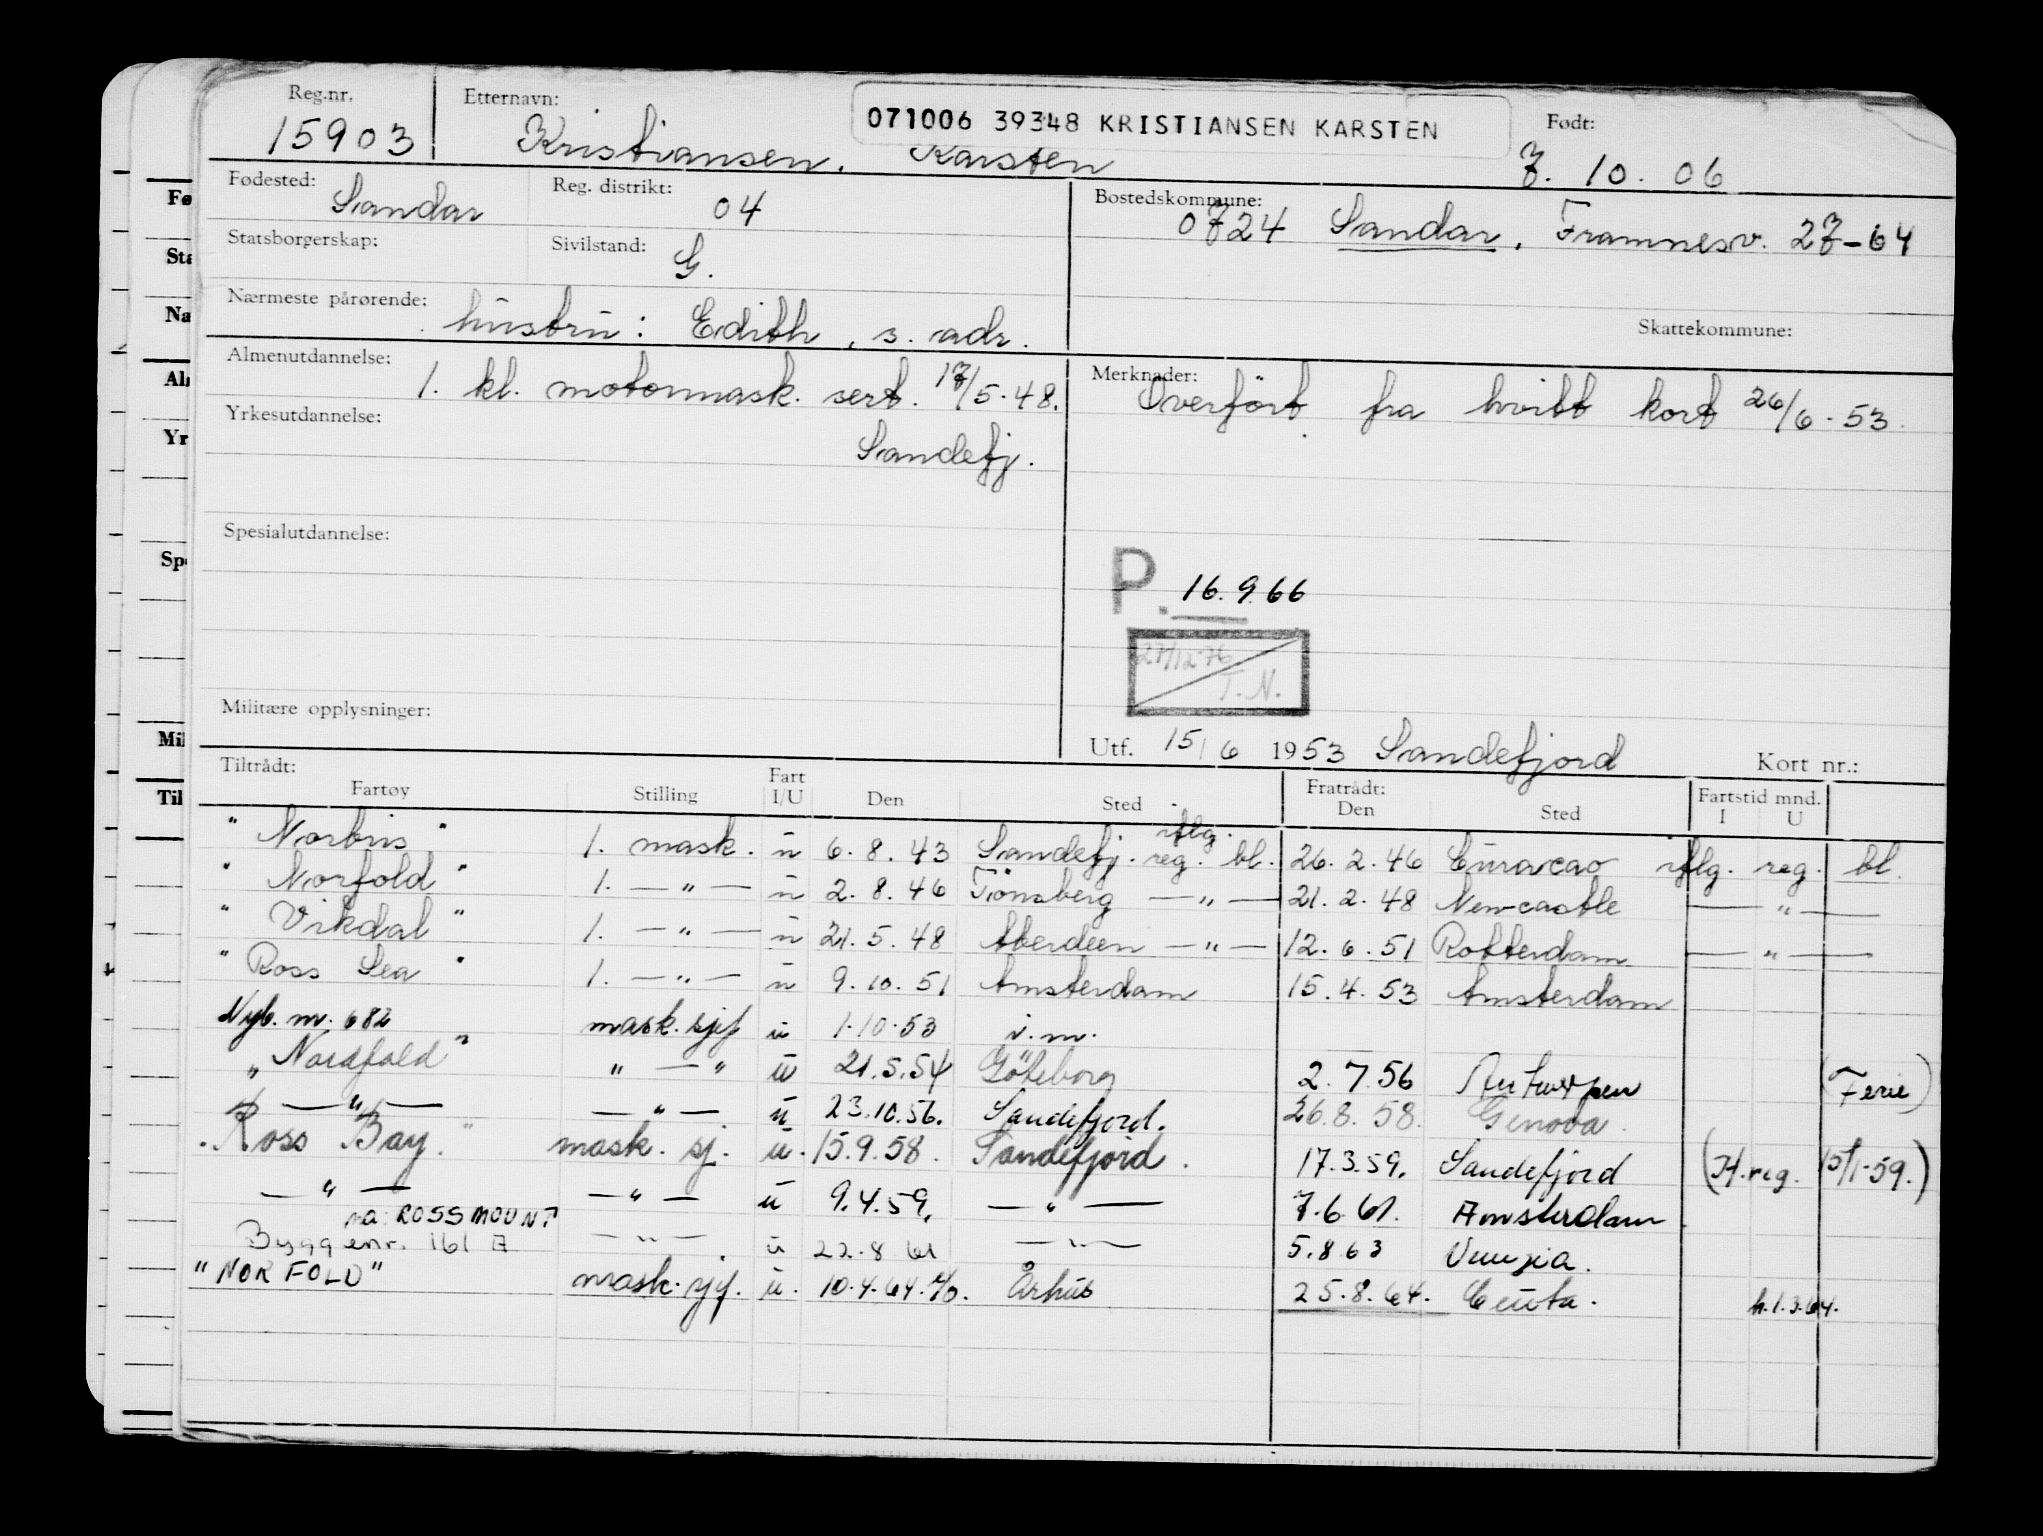 Reg.nr. Etternavn: 071006 39348 KRISTIANSEN KARSTEN Født:
15903 Kristiansen, Karsten 7. 10. 06
Fødested: Sandar Reg. distrikt: 04 Bostedskommune:
0724 Sandar, Framnesv. 27-64
Statsborgerskap: Sivilstand: G.
Nærmeste pårørende: hustru: Edith, s. adr. Skattekommune:
Almenutdannelse: 1. kl. motormask. sert. 17/5-48. Merknader: Overført fra hvitt kort 26/6-53.
Yrkesutdannelse: Sandefj.
Spesialutdannelse:
P. 16.9.66
27/12-76
T.N.
Militære opplysninger:
Utf. 15/6 1953 Sandefjord Kort nr.:
Tiltrådt: Fratrådt: Fartstid mnd.
Fartøy Stilling Fart I/U Den Sted Den Sted I U
"Norbris" 1. mask. u 6.8.43 Sandefj. iflg. reg. bl. 26.2.46 Curacao iflg. reg. bl.
"Norfold" 1. —"— u 2.8.46 Tönsberg —"— 21.2.48 Newcastle —"—
"Vikdal" 1. —"— u 21.5.48 Aberdeen —"— 12.6.51 Rotterdam —"—
"Ross Sea" 1. —"— u 9.10.51 Amsterdam 15.4.53 Amsterdam
Nyb. nr. 682 mask. sjef u 1.10.53
"Nordfold" " — " u 21.5.54 Göteborg 2.7.56 Antwerpen (Ferie)
—"— —"— u 23.10.56. Sandefjord. 26.8.58. Genova.
"Ross Bay" mask. sj. u. 15.9.58. Sandefjord. 17.3.59. Sandefjord (H.reg. 15/1-59.)
—"— —"— u 9.4.59. —"— 7.6.61. Amsterdam
na: ROSSMOUNT
Byggenr. 161 A —"— u 22.8.61 —"— 5.8.63 Venezia.
"NORFOLD" mask. sjef. u. 10.4.64. Århus 25.8.64. Ceuta. h.1.3.64.
Fø
Sta
Na
Al
Yr
Spe
Mil
Til